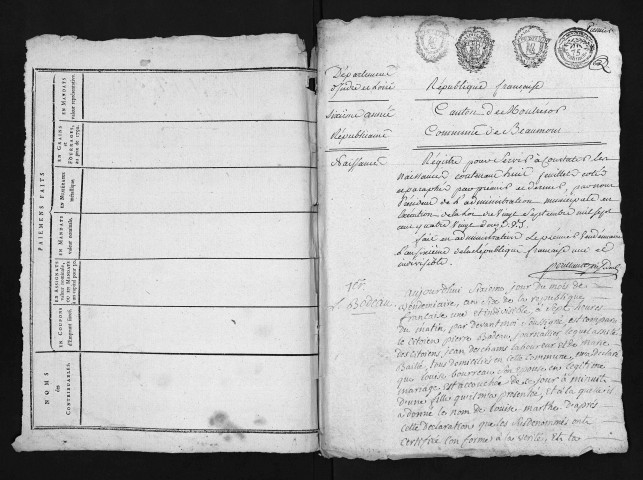 PAIEMENS FAITS
EN MANDATS
valeur représentative
EN GRAINS
ou
FOURRAGES,
au prix de 1790.
EN NUMÉRAIRE
métallique.
EN MANDATS
valeur nominale.
EN ASSIGNATS
valeur nominale
OU EN MANDATS
EN COUPONS
d'Emprunt forcé.
NOMS
des
CONTRIBUABLES.
Premier
Département
d'Indre et Loire
République française
Sixième année
Républicaine
Canton de Montresor
Commune de Beaumont
Naissance
Régistre pour servir à constater les
naissance contenant huit feuillet cotés
et paraphés par premier et dernier, par nous
président de l'administration municipale en
execution de la loi du vingt Septembre mil sept
cent quatre vingt douze
fait en administration le premier Vendémiaire
l'an sixieme de la république française une et
indivisible.
1er
Bodeau
aujourd'hui sixième jour du mois de
Vendemiaire, an six de la république
française une et indivisible, à sept heures
du matin, par devant moi soussigné est comparu
le citoyen pierre Bodeau, journallier lequel assisté
des citoyens, jean deschamps laboureur et de marie
tous domiciliés en cette commune, m'a déclaré
que louise bourreau son epouse en légitime
mariage est accouchée de ce jour à minuit
d'une fille qu'il m'a presenté, et à la quelle il
a donné le nom de louise marthe. d'après
cette déclaration que les susdenommés ont
certifiée conforme à la vérité, et la